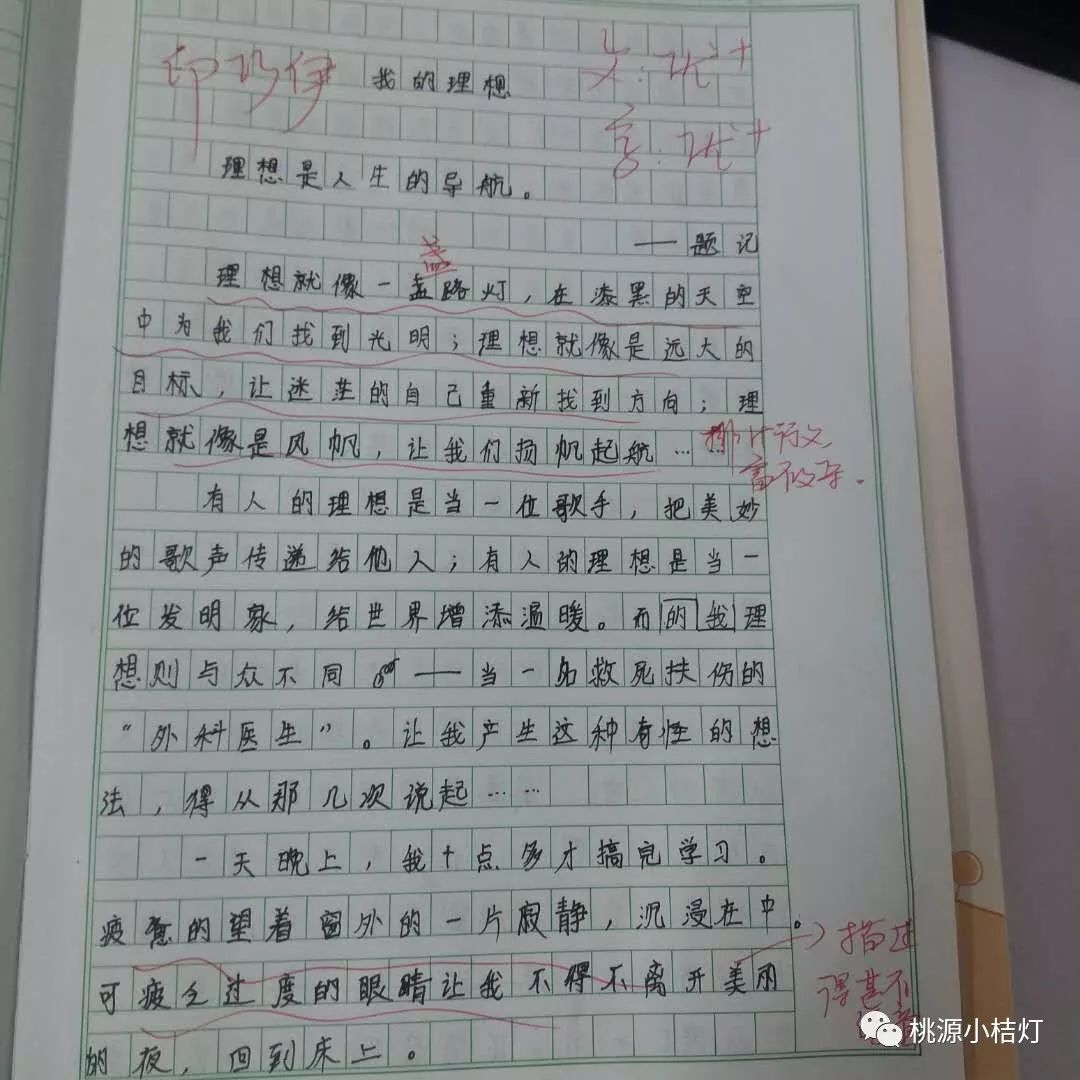 我的理想
优+
优+
理想是人生的导航。
——题记
盏
理想就像一盏路灯，在漆黑的天空
中为我们找到光明；理想就像是远大的
目标，让迷茫的自己重新找到方向；理
想就像是风帆，让我们扬帆起航……
有人的理想是当一位歌手，把美妙
的歌声传递给他人；有人的理想是当一
位发明家，给世界增添温暖。而的我理
想则与众不同——当一名救死扶伤的
“外科医生”。让我产生这种奇怪的想
法，得从那几次说起……
一天晚上，我十点多才搞完学习。
疲惫的望着窗外的一片寂静，沉浸在中。
可疲乏过度的眼睛让我不得不离开美丽
的夜，回到床上。
描述
得甚不
桃源小桔灯